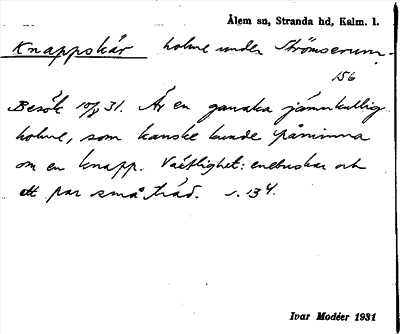 Ålem sn, Stranda hd, Kalm. l.
Knappskär holme under Strömserum.
156
Besök 10/8 31. Är en ganska jämnkullig
holme, som kanske kunde påminna
om en knapp. Växtlighet: enebuskar och
ett par små träd. s. 134.
Ivar Modéer 1931